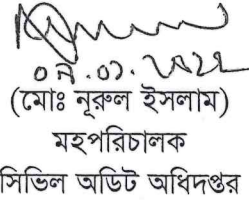 ০৯.০১.২০২২
(মোঃ নূরুল ইসলাম)
মহপরিচালক
সিভিল অডিট অধিদপ্তর